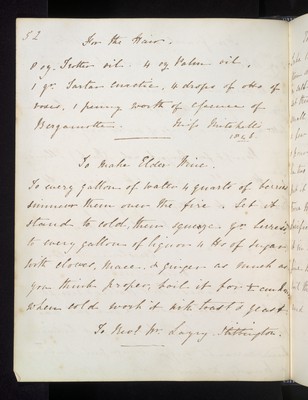 52
For the Hair.
8 oz. Trotter oil. 4 oz Palm oil.
1 qr. Tartar caustic. 4 drops of otto of
roses. 1 penny worth of essence of
Bergamotte. Miss Mitchell
To make Elder Wine.
To every gallon of water 4 quarts of berries
simmer them over the fire. Let it
stand to cold, then squeeze yr berries
to every gallon of liquor 4 lbs of sugar
with cloves, Mace, & ginger as much as
you think proper, boil it for
when cold work it with toast & yeast.